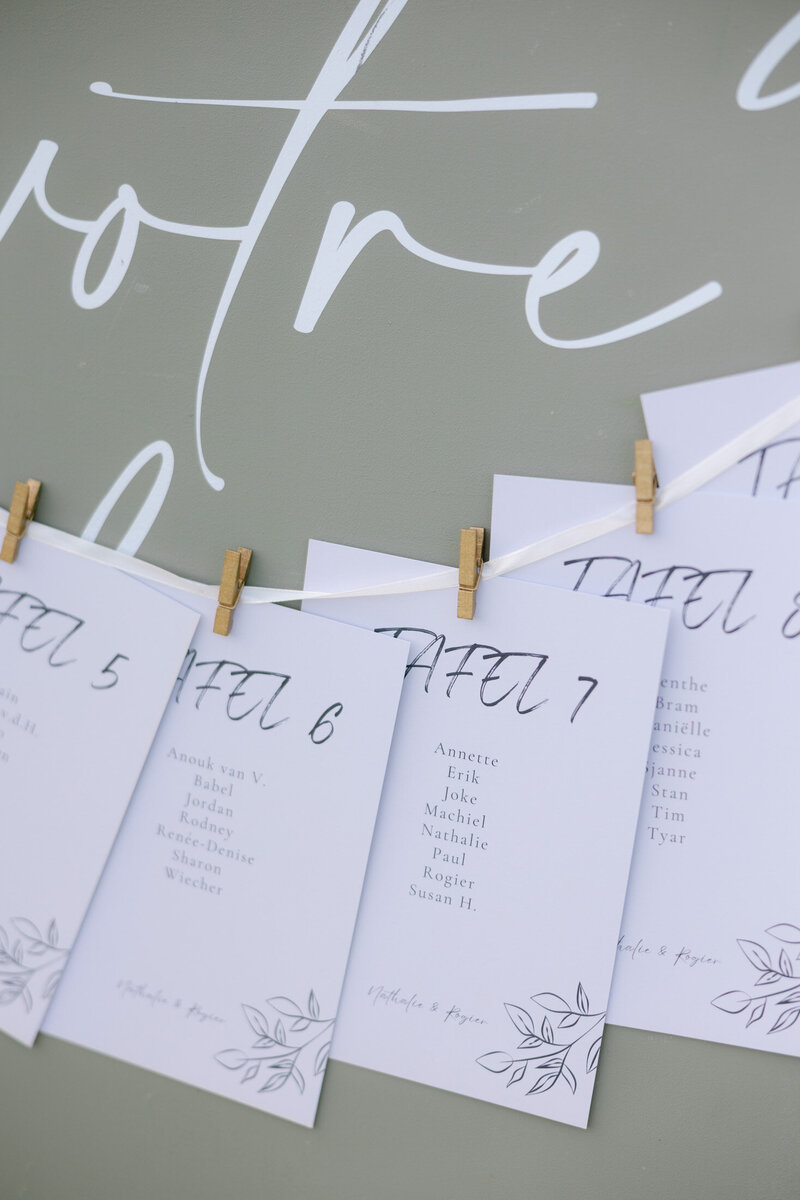 votre
TAFEL 5
v.d.H.
TAFEL 6
Anouk van V.
Babel
Jordan
Rodney
Renée-Denise
Sharon
Wiecher
Nathalie & Rogier
TAFEL 7
Annette
Erik
Joke
Machiel
Nathalie
Paul
Rogier
Susan H.
Nathalie & Rogier
TAFEL 8
enthe
Bram
Daniëlle
Jessica
Sjanne
Stan
Tim
Tyar
Nathalie & Rogier
TA